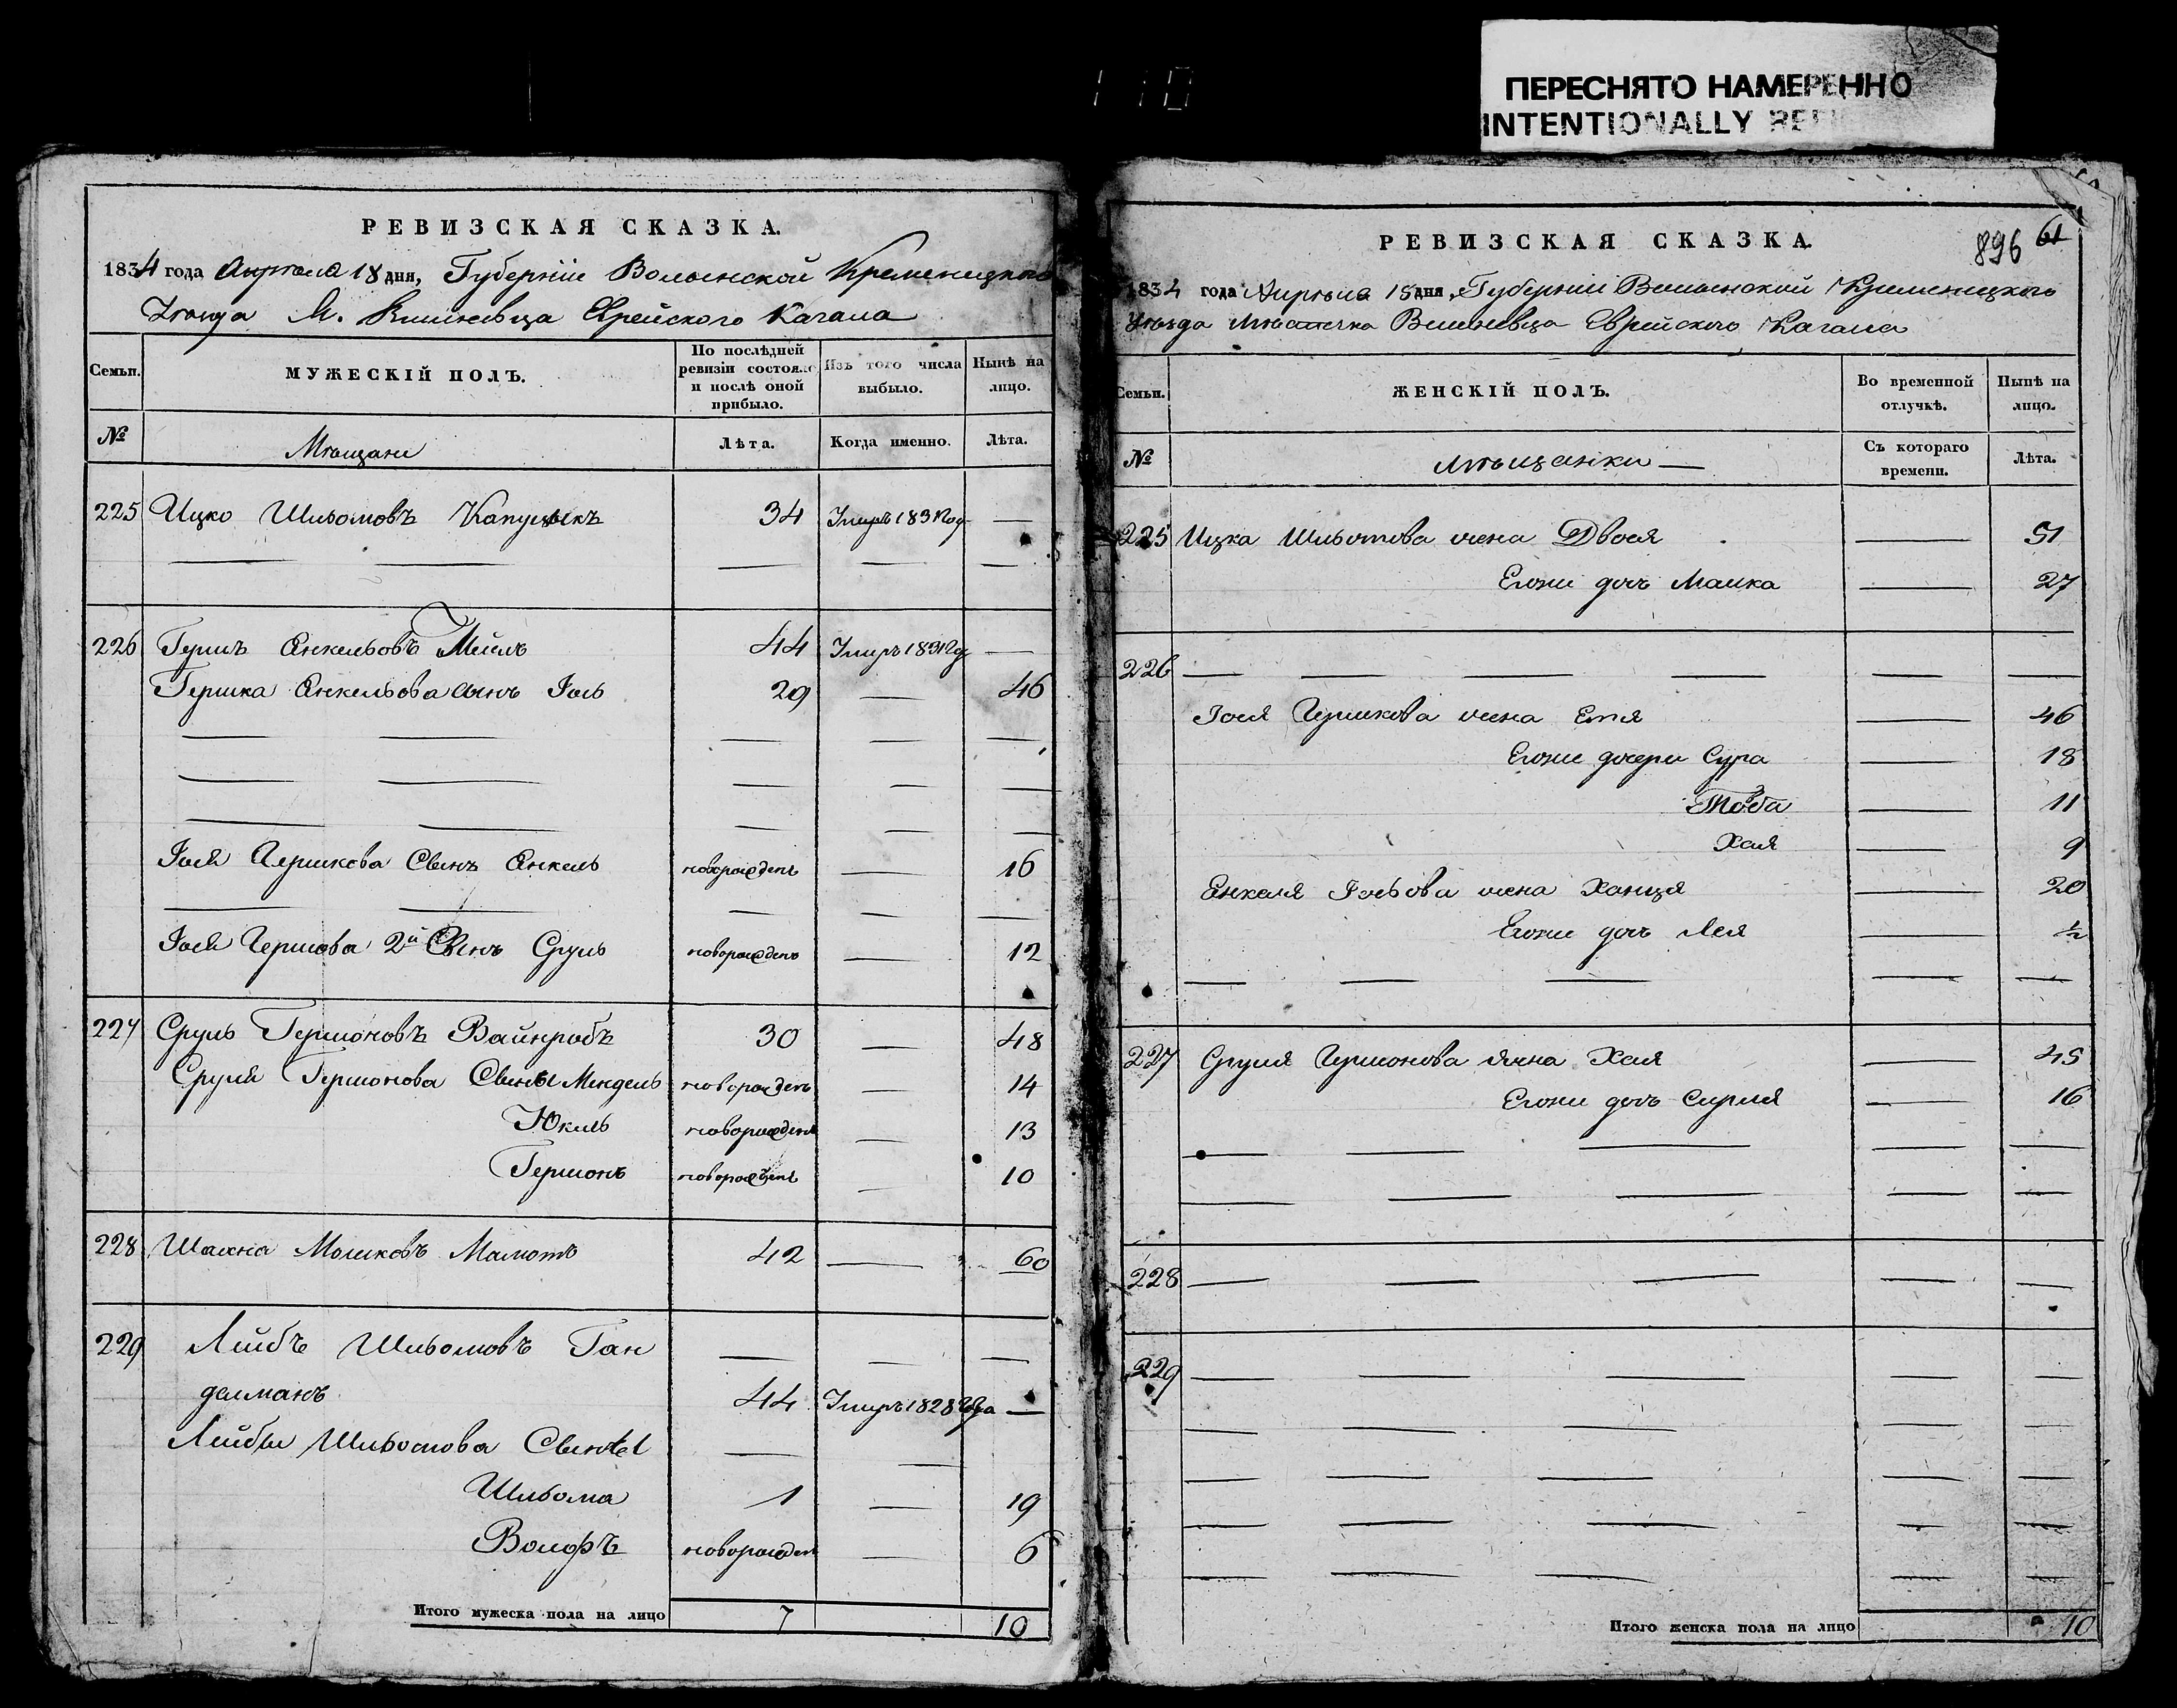 ПЕРЕСНЯТО НАМЕРЕННО
INTENTIONALLY
РЕВИЗСКАЯ СКАЗКА.
1834 года Апреля 18 дня, Губернiи Волынской Кременецкого
Уезда М. Вишневца Еврейского Кагала
Семьи.
МУЖЕСКIЙ ПОЛЪ.
По последней ревизiи состояло и после оной прибыло.
Изъ того числа выбыло.
Ныне на лицо.
№
Мещане
Лѣта.
Когда именно.
Лѣта.
225 Ицко Шльомовъ Капущикъ 34 Умеръ 1831 год —
226 Гершъ Янкельовъ 44 Умеръ 1831 год —
Гершка Янкельова сынъ Iоль 29 — 46
Iоля Гершкова Сынъ Янкель новорожденъ — 16
Iоля Гершкова 2й Сынъ Сруль новорожденъ — 12
227 Сруль Гершоновъ Вайнробъ 30 — 48
Сруля Гершонова Сыны Мендель новорожденъ — 14
Юкель новорожденъ — 13
Гершонъ новорожденъ — 10
228 Шахна Мошковъ Мамотъ 42 — 60
229 Лейбъ Шльомовъ Ган
делманъ 44 Умеръ 1828 года —
Лейбы Шльомова Сыны
Шльома 1 — 19
Волфъ новорожден — 6
Итого мужеска пола на лицо 7 10
896 61
РЕВИЗСКАЯ СКАЗКА.
1834 года Апреля 18 дня, Губернiи Волынской Кременецкого
Уезда Местечка Вишневца Еврейского Кагала
Семьи.
ЖЕНСКIЙ ПОЛЪ.
Во временной отлучкѣ.
Нынѣ на лицо.
№
Мещанки —
Съ котораго времени.
Лѣта.
225 Ицка Шльомова жена Двося — 51
Егоже дочь Малка — 27
226
Iоля Гершкова жена Етя — 46
Егоже дочери Сура — 18
Тоба — 11
Хая — 9
Енкеля Iольова жена Ханця — 20
Егоже дочь Лея — ½
227 Сруля Гершонова жена Хая — 45
Егоже дочь Сирля — 16
228
229
Итого женска пола на лицо 10